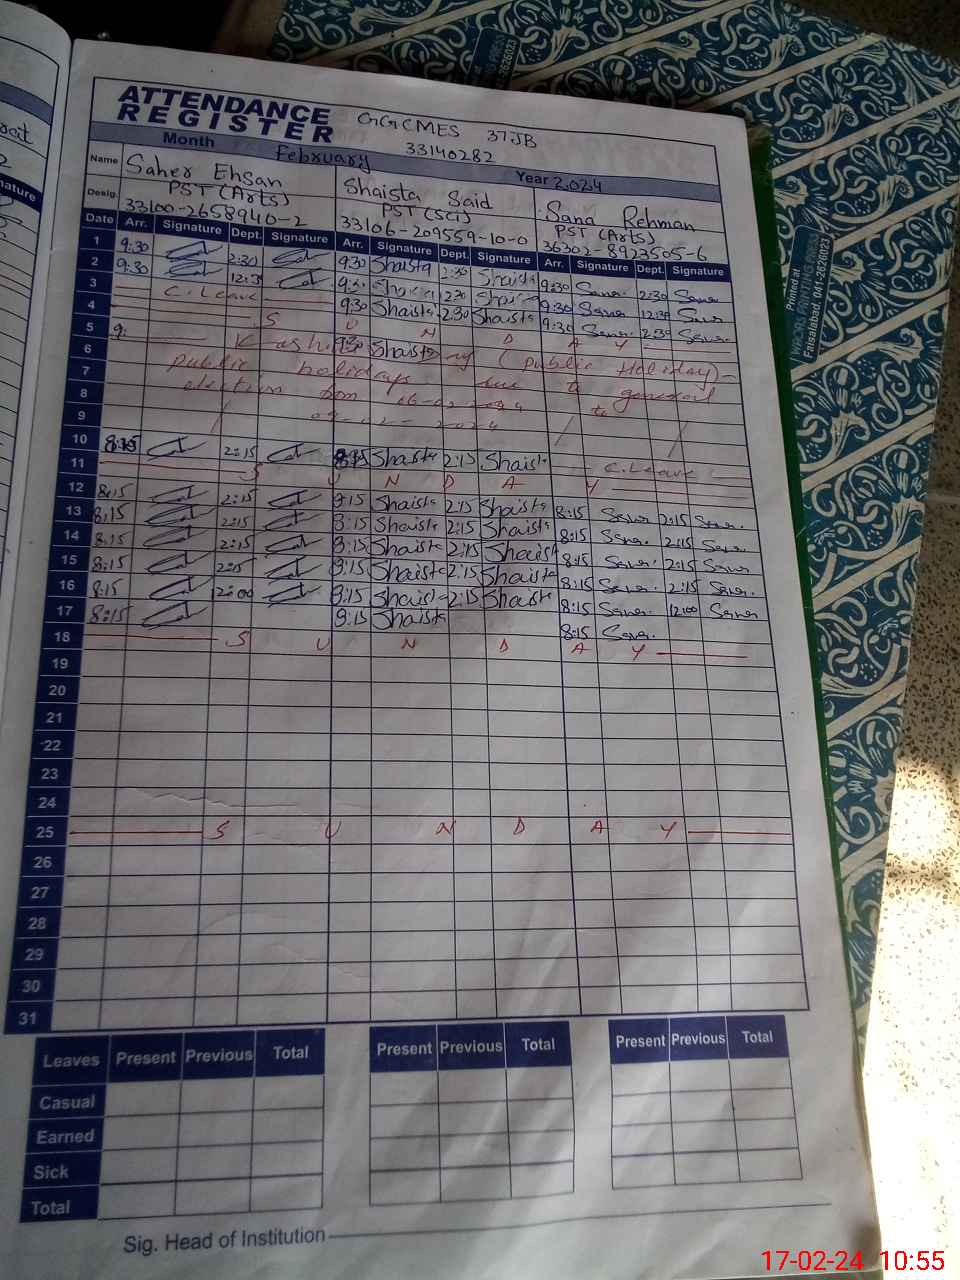 ATTENDANCE
REGISTER
GGCMES 37JB
33140282
Month February Year 2024
Name Saher Ehsan Shaista Said Sana Rehman
Desig. PST (Arts) PST (Sci) PST (Arts)
33100-2658940-2 33106-209559-10-0 36302-8923505-6
Date Arr. Signature Dept. Signature Arr. Signature Dept. Signature Arr. Signature Dept. Signature
1 9:30 2:30 9:30 Shaista 2:30 Shaista 9:30 Sana 2:30 Sana
2 9:30 12:30 9:30 Shaista 2:30 Shaista 9:30 Sana 12:30 Sana
3 C. Leave 9:30 Shaista 2:30 Shaista 9:30 Sana 2:30 Sana
4 S U N D A Y
5 9: Kashmir 9:30 Shaista Day (Public Holiday)
6 public holidays due to general
7 election from 06-02-2024 to
8 09-02-2024
9
10 8:15 2:15 8:15 Shaista 2:15 Shaista C. Leave
11 S U N D A Y
12 8:15 2:15 8:15 Shaista 2:15 Shaista 8:15 Sana 2:15 Sana
13 8:15 2:15 8:15 Shaista 2:15 Shaista 8:15 Sana 2:15 Sana
14 8:15 2:15 8:15 Shaista 2:15 Shaista 8:15 Sana 2:15 Sana
15 8:15 2:15 8:15 Shaista 2:15 Shaista 8:15 Sana 2:15 Sana
16 8:15 12:00 8:15 Shaista 2:15 Shaista 8:15 Sana 12:00 Sana
17 8:15 8:15 Shaista 8:15 Sana
18 S U N D A Y
19
20
21
22
23
24
25 S U N D A Y
26
27
28
29
30
31
Leaves Present Previous Total Present Previous Total Present Previous Total
Casual
Earned
Sick
Total
Sig. Head of Institution
Printed at
Faisalabad. 041-2626023
17-02-24 10:55